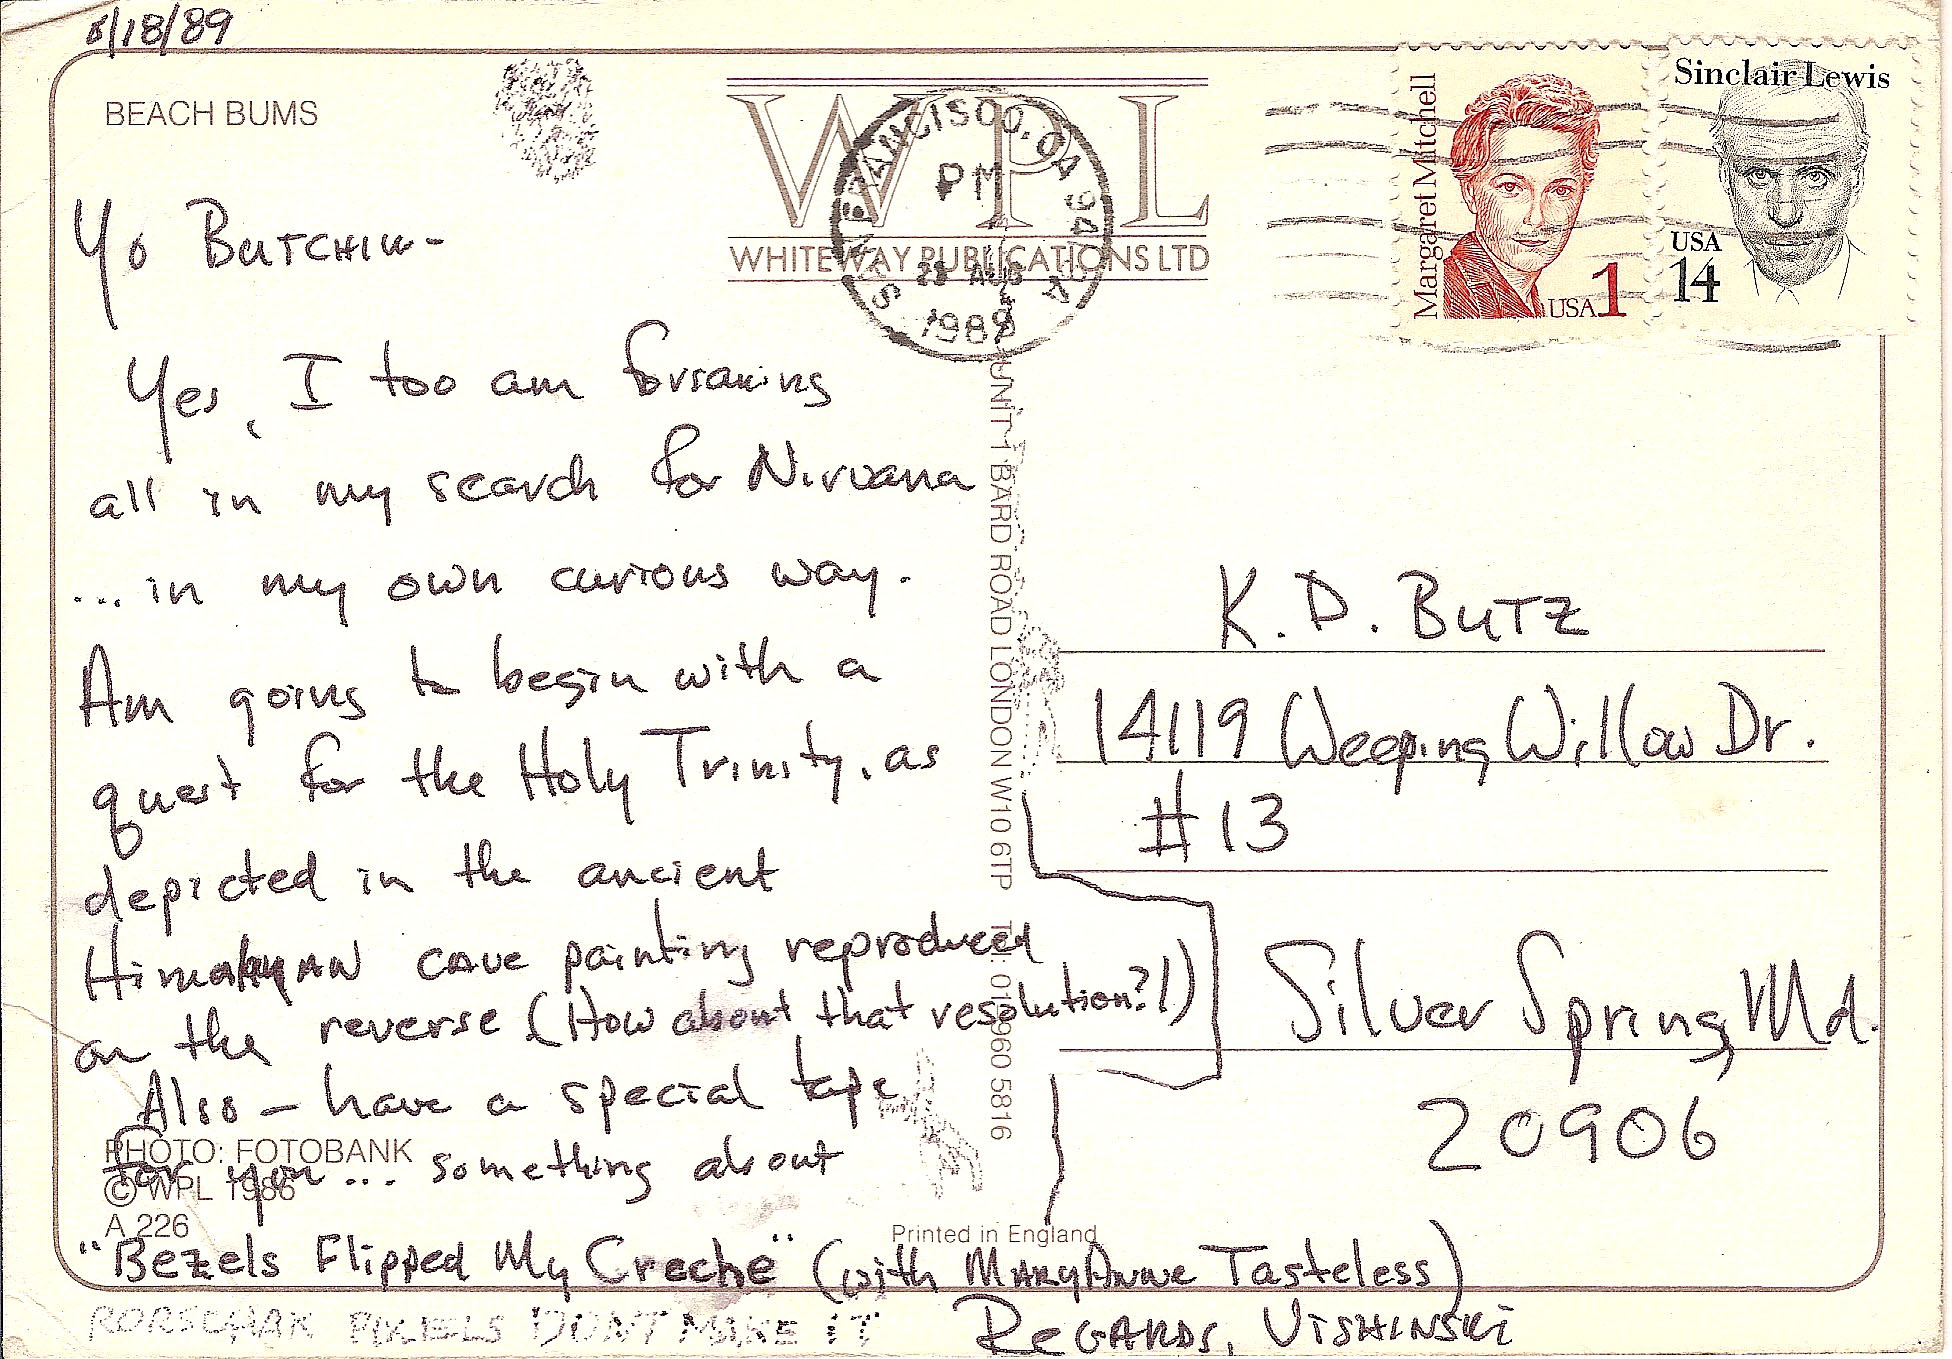 8/18/89
BEACH BUMS
WPL
WHITEWAY PUBLICATIONS LTD
SAN FRANCISCO, CA 941
PM
AUG
1989
Margaret Mitchell
USA 1
Sinclair Lewis
USA
14
Yo Butchiw-
Yes, I too am forsaking
all in my search for Nirvana
... in my own curious way.
Am going to begin with a
quest for the Holy Trinity, as
depicted in the ancient
Himalayan cave painting reproduced
on the reverse (How about that resolution?!)
Also - have a special tape
for you ... something about
"Bezels Flipped My Creche" (with MaryAnne Tasteless)
Regards, Vishinski
RORSCHAK PIXELS DON'T MAKE IT
UNIT 1 BARD ROAD LONDON W10 6TP Tel: 01-960 5816
K. D. Butz
14119 Weeping Willow Dr.
#13
Silver Spring, Md.
20906
PHOTO: FOTOBANK
© WPL 1986
A 226
Printed in England